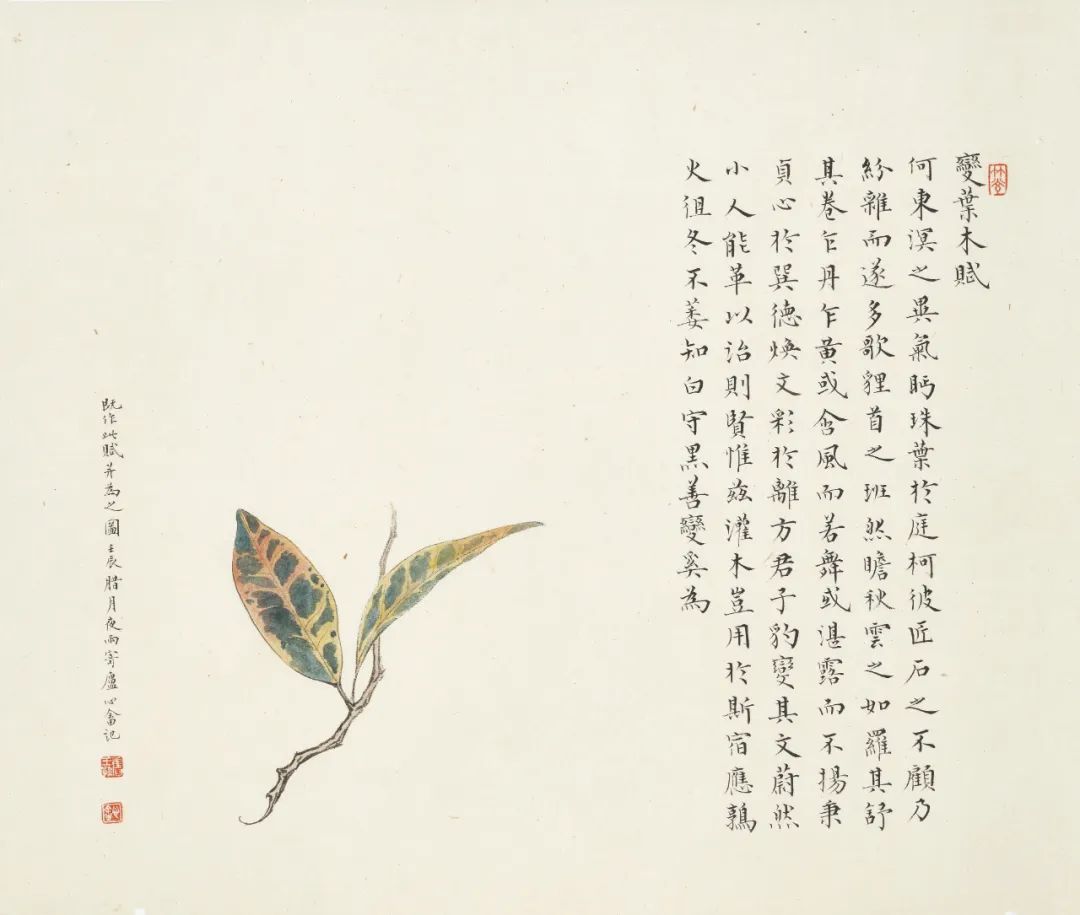 變葉木賦
何東溟之異氣眄珠葉於庭柯彼匠石之不顧乃
紛雜而遂多歌貍首之班然瞻秋雲之如羅其舒
其卷乍丹乍黃或含風而若舞或湛露而不揚秉
貞心於巽德煥文彩於離方君子豹變其文蔚然
小人能革以治則賢惟茲灌木豈用於斯宿應鶉
火徂冬不萎知白守黑善變奚為
既作此賦并為之圖壬辰腊月夜雨寄廬心畬記